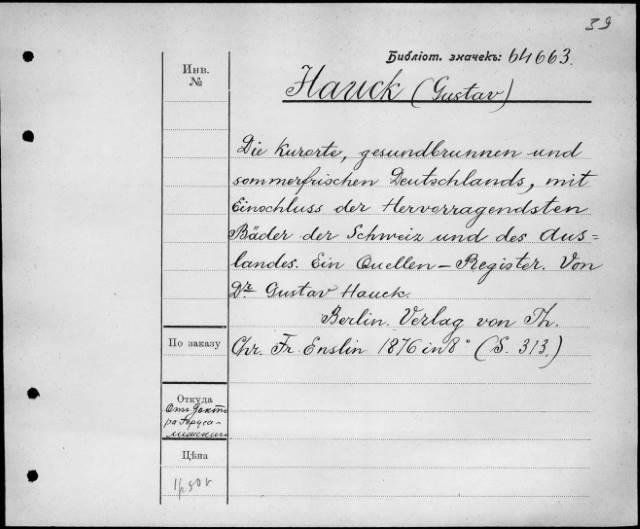 39
Библіот. значекъ: 64663.
Инв.
№
Hauck (Gustav)
Die Kurorte, gesundbrunnen und
sommerfrischen Deutschlands, mit
Einschluss der Hervorragendsten
Bäder der Schweiz und des Aus=
landes. Ein Quellen-Register. Von
Dr. Gustav Hauck.
Berlin. Verlag von Th.
Chr. Fr. Enslin 1876 in 8° (S. 313.)
По заказу
Откуда
Отъ Докто
ра
Цѣна